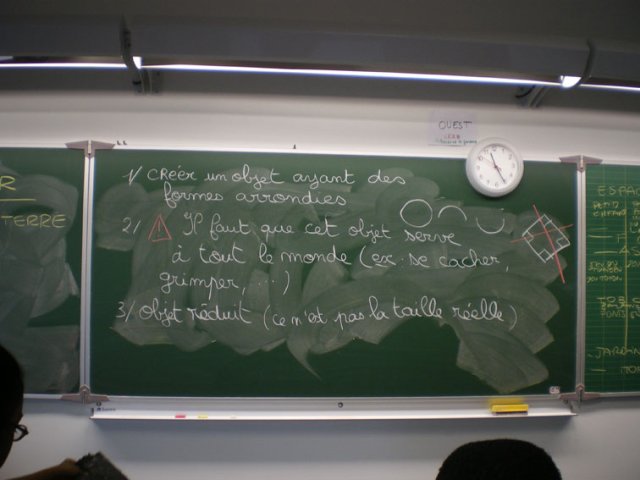 OUEST
1/ Créer un objet ayant des
formes arrondies
2/ ! Il faut que cet objet serve
à tout le monde (ex: se cacher,
grimper, ...)
3/ Objet réduit (ce n'est pas la taille réelle)
R
TERRE
ESPA
PETIT
JARDIN